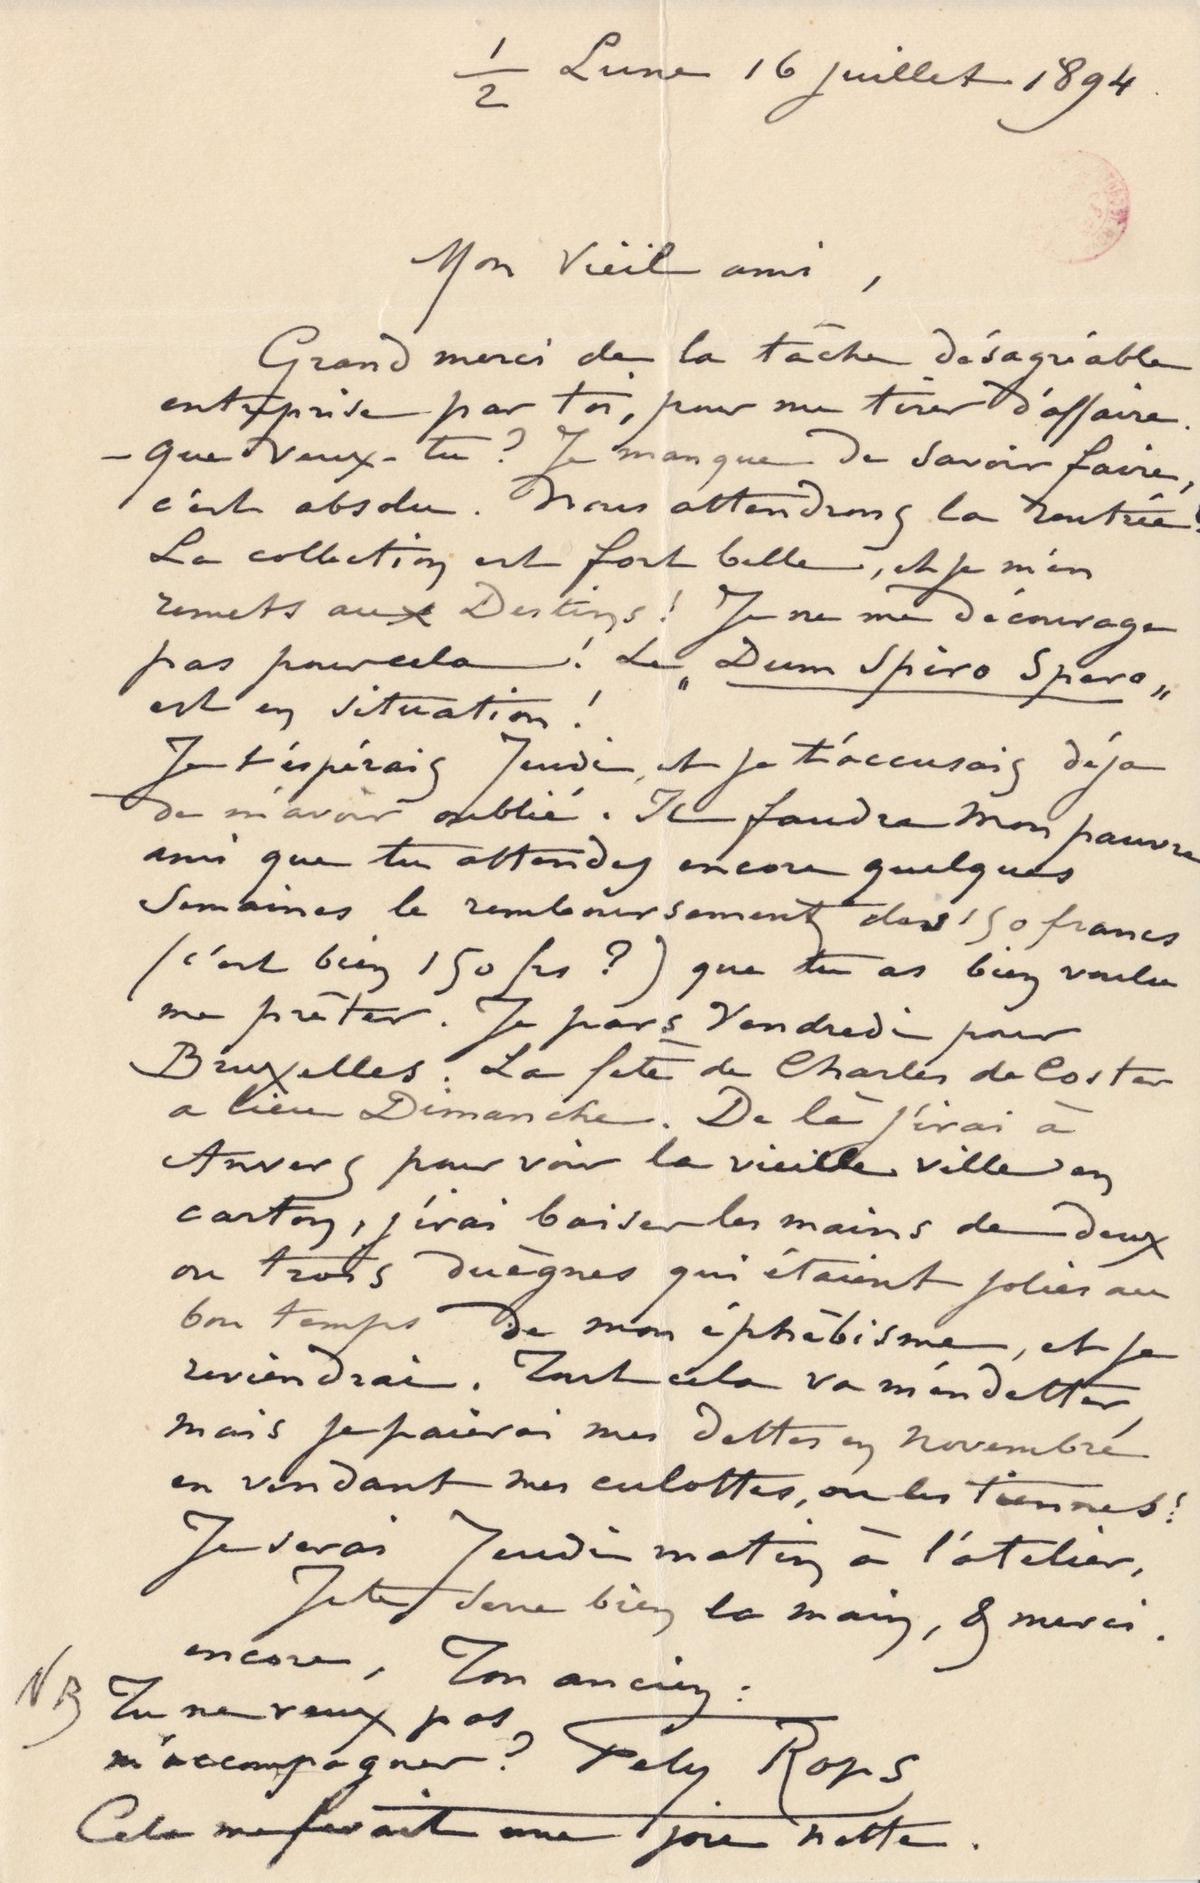 1/2 Lune 16 juillet 1894.
Mon Vieil ami,
Grand merci de la tâche désagréable
entreprise par toi, pour me tirer d'affaire.
– Que veux-tu ? Je manque de savoir faire,
c'est absolu. Nous attendrons la rentrée !
La collection est fort belle, et je m'en
remets aux Destins ! Je ne me décourage
pas pour cela ! Le „ Dum Spiro Spero „
est en situation !
Je t'éspérais Jeudi, et je t'accusais déja
de m'avoir oublié. Il faudra mon pauvre
ami que tu attendes encore quelques
Semaines le remboursement des 150 francs
(c'est bien 150 frs ?) que tu as bien voulu
me prêter. Je pars Vendredi pour
Bruxelles. La fete de Charles de Coster
a lieu Dimanche. De là j'irai à
Anvers pour voir la vieille ville en
carton, j'irai baiser les mains de deux
ou trois duègnes qui étaient jolies au
bon temps de mon éphèbisme, et je
reviendrai. Tout cela va m'endetter,
mais je paierai mes dettes en novembre
en vendant mes culottes, ou les tiennes !
Je serai Jeudi matin à l'atelier,
Je te serre bien la main, & merci.
encore, Ton ancien :
NB Tu ne veux pas
m'accompagner ? Fély Rops
Cela me ferait une joie nette.